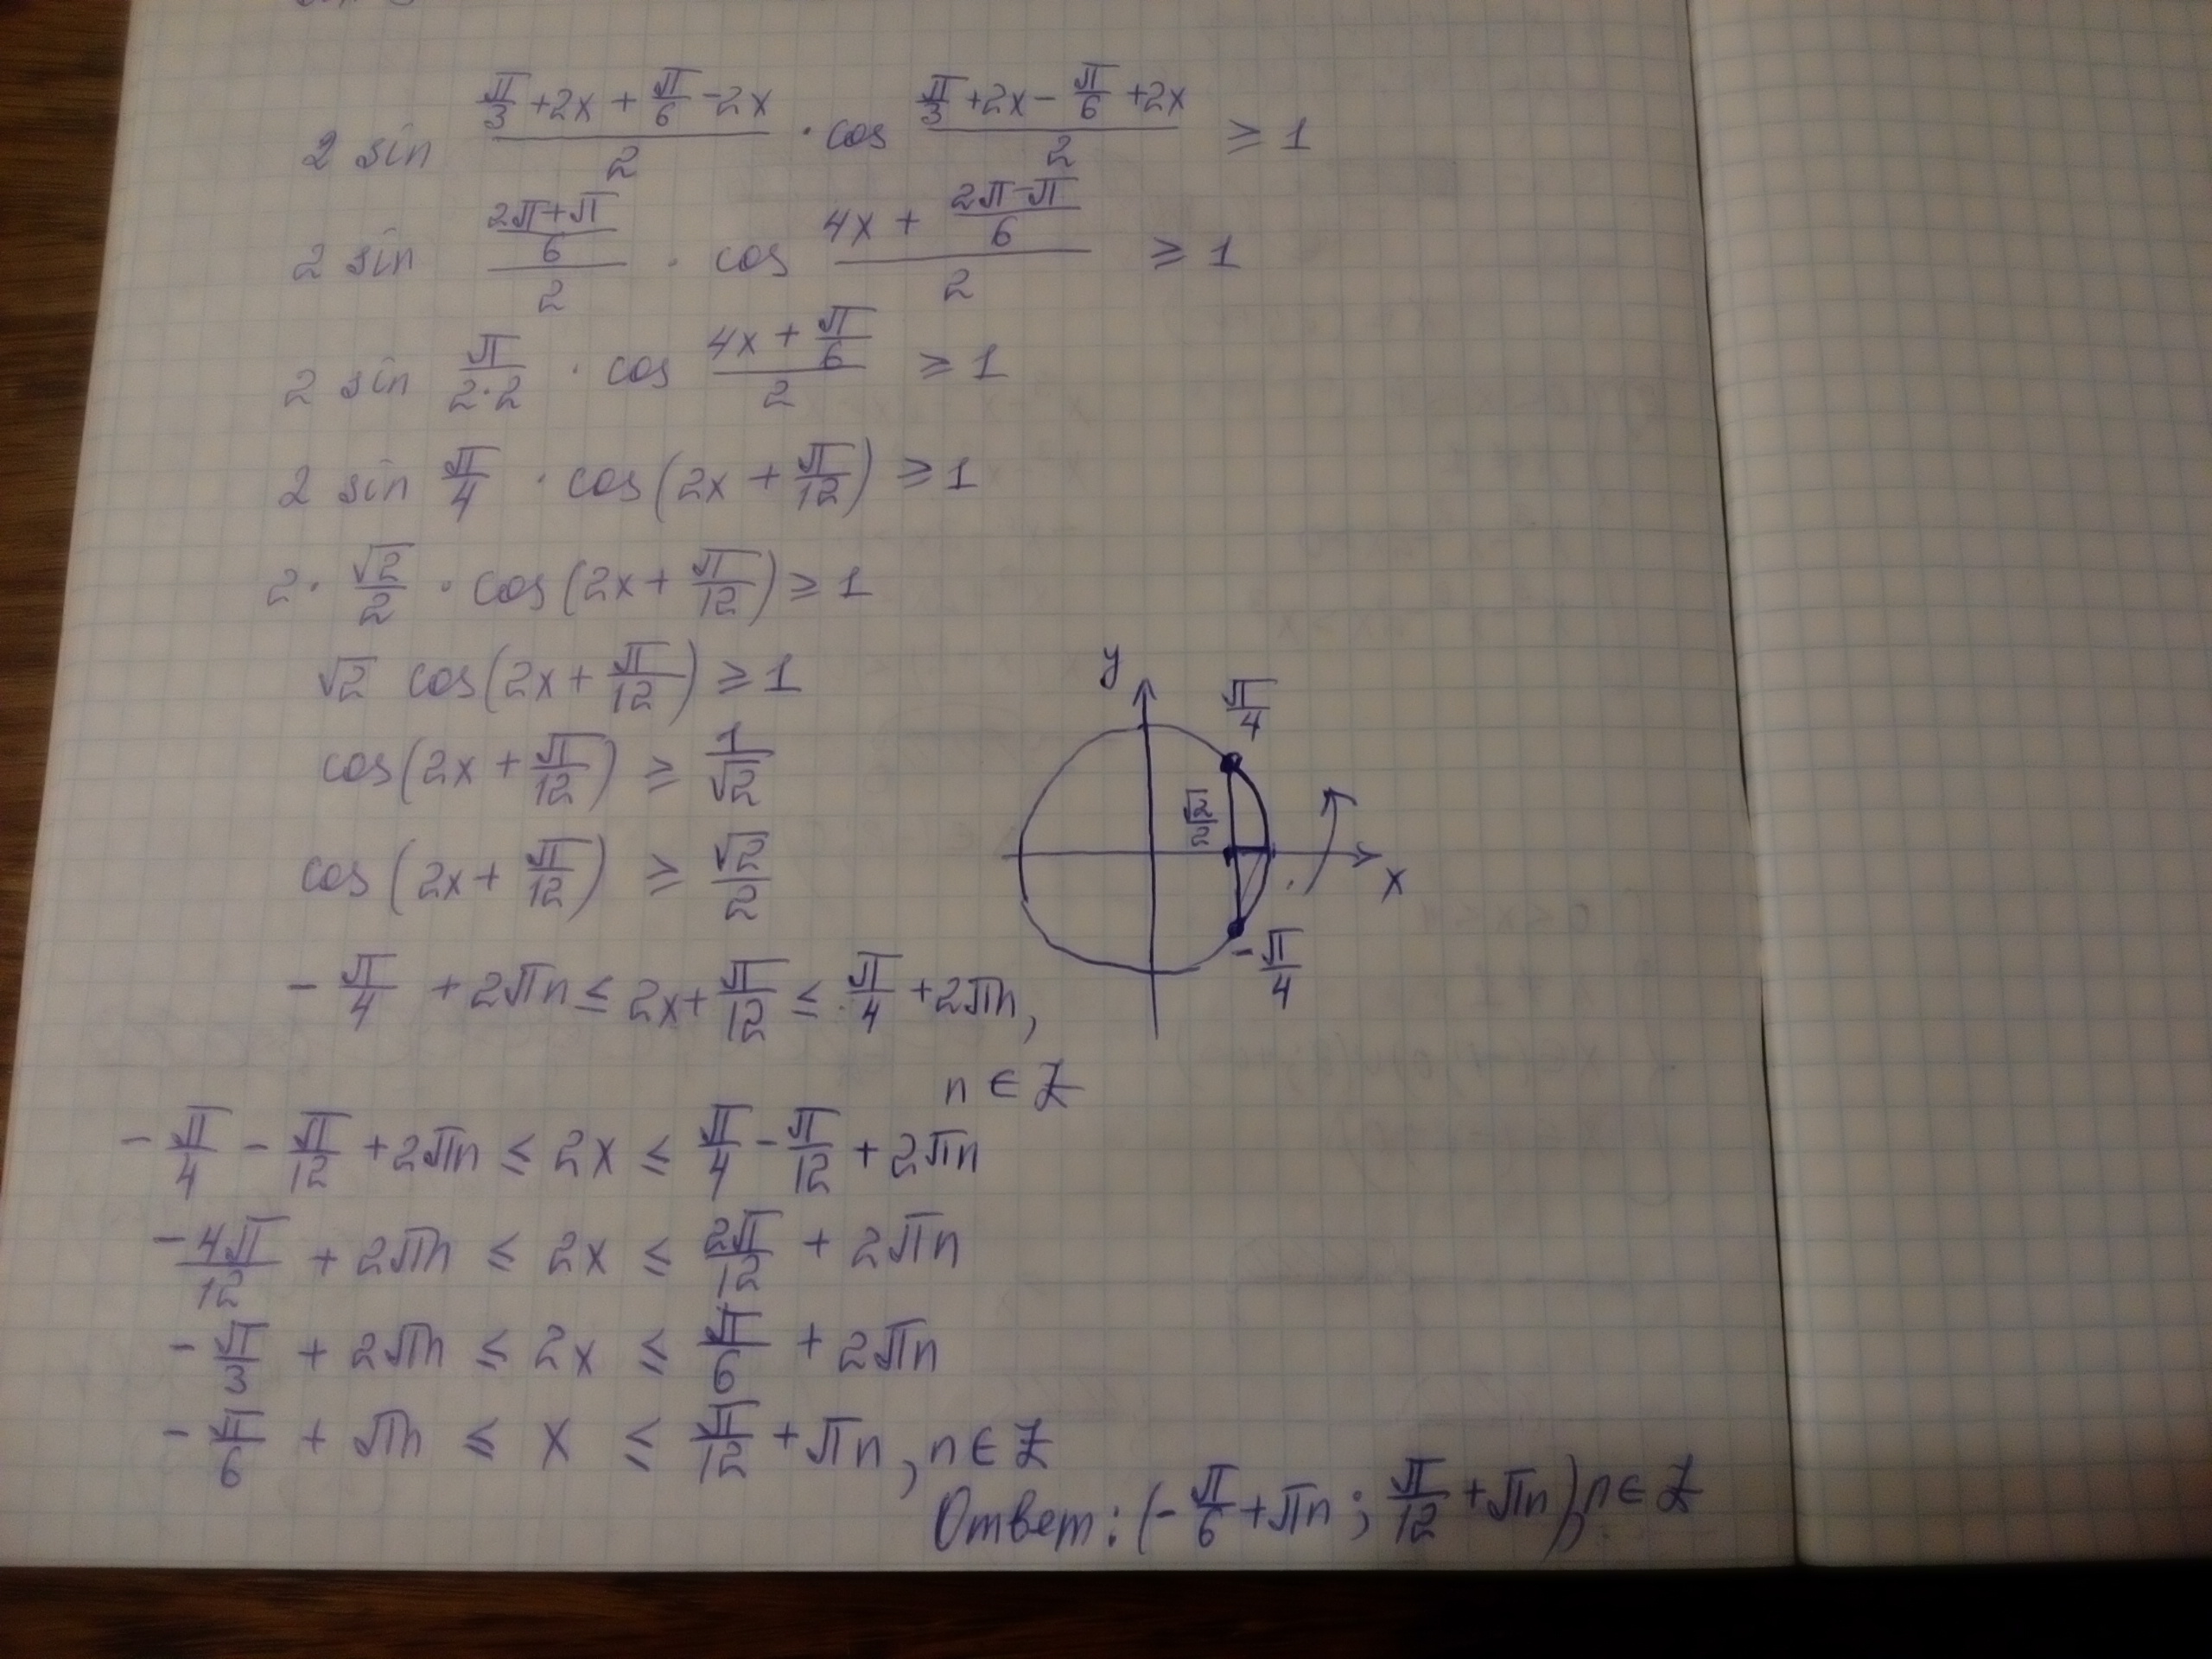 2 sin (π/3 + 2x + π/6 - 2x)/2 · cos (π/3 + 2x - π/6 + 2x)/2 ≥ 1
2 sin ((2π+π)/6)/2 · cos (4x + (2π-π)/6)/2 ≥ 1
2 sin π/(2·2) · cos (4x + π/6)/2 ≥ 1
2 sin π/4 · cos(2x + π/12) ≥ 1
2 · √2/2 · cos(2x + π/12) ≥ 1
√2 cos(2x + π/12) ≥ 1
cos(2x + π/12) ≥ 1/√2
cos(2x + π/12) ≥ √2/2
y
π/4
√2/2
x
-π/4
- π/4 + 2πn ≤ 2x + π/12 ≤ π/4 + 2πn,
n ∈ Z
- π/4 - π/12 + 2πn ≤ 2x ≤ π/4 - π/12 + 2πn
-4π/12 + 2πn ≤ 2x ≤ 2π/12 + 2πn
- π/3 + 2πn ≤ 2x ≤ π/6 + 2πn
- π/6 + πn ≤ x ≤ π/12 + πn, n ∈ Z
Ответ: (- π/6 + πn ; π/12 + πn), n ∈ Z